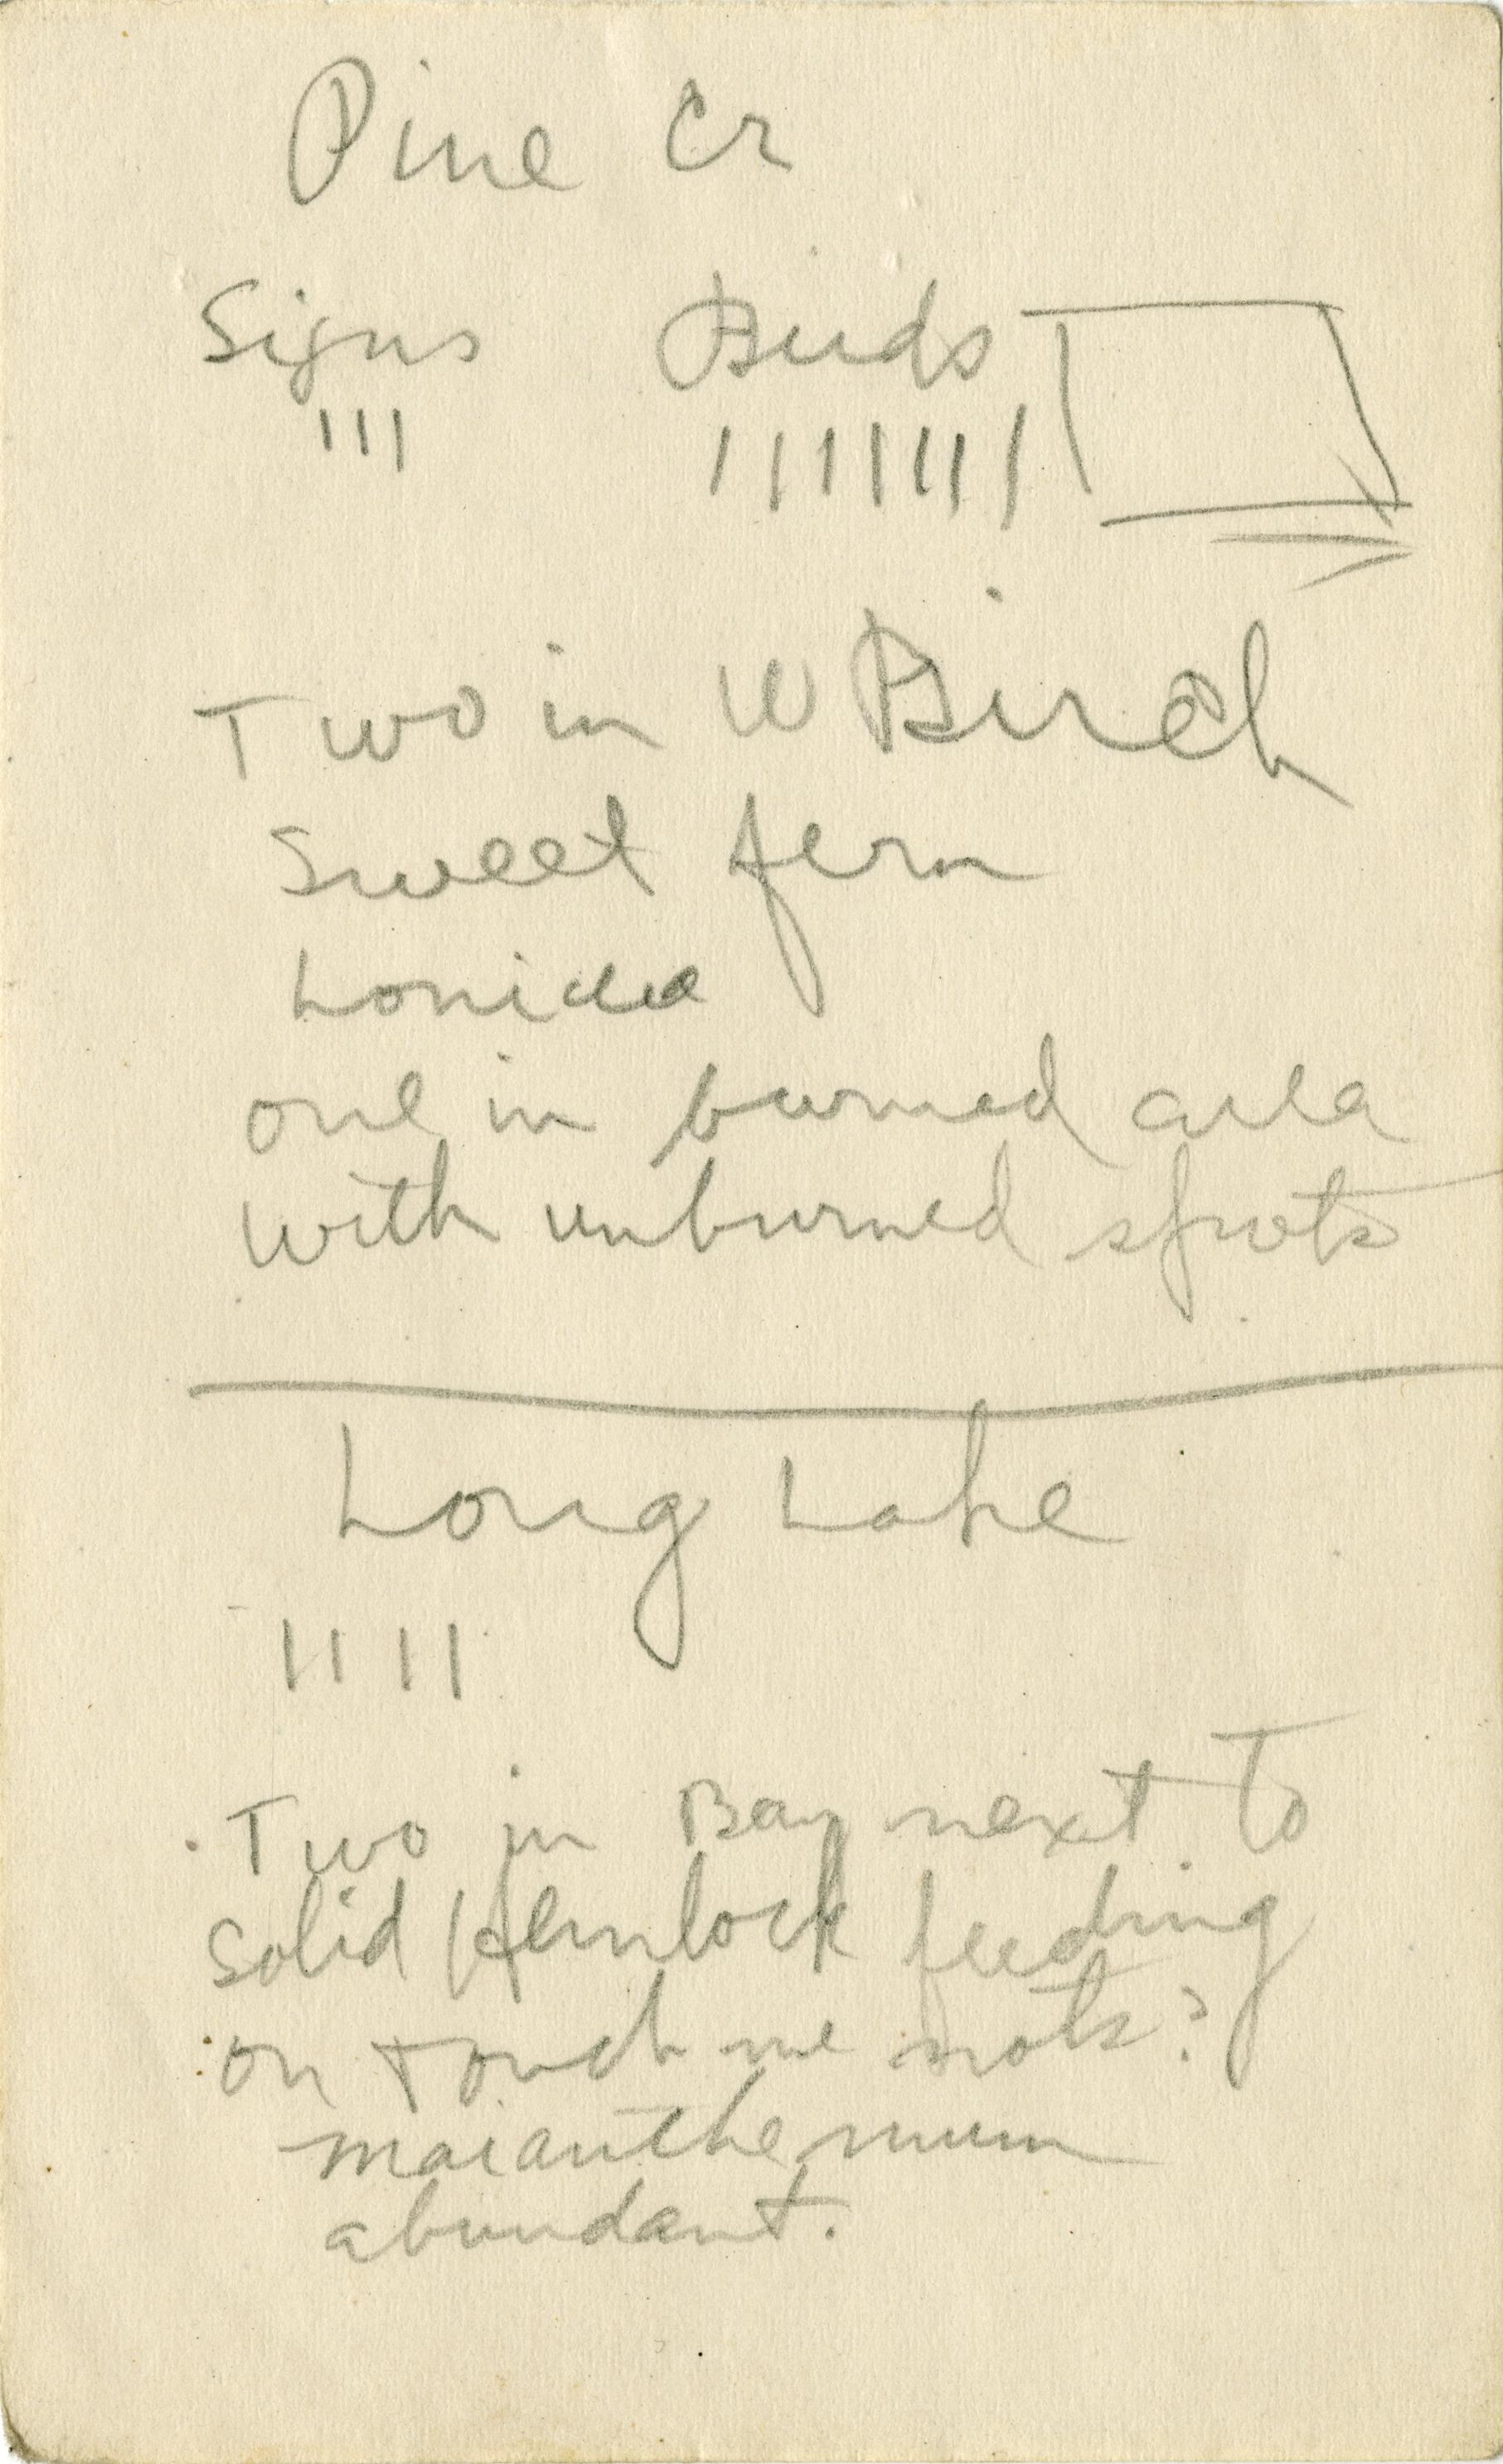 Pine Cr
Signs Birds
III IIIIIII
Two in W Birch
Sweet fern
Lonicera
one in burned area
with unburned spots
Long Lake
IIII
Two in Bay next to
solid Hemlock feeding
on touch me nots?
maianthemum
abundant.